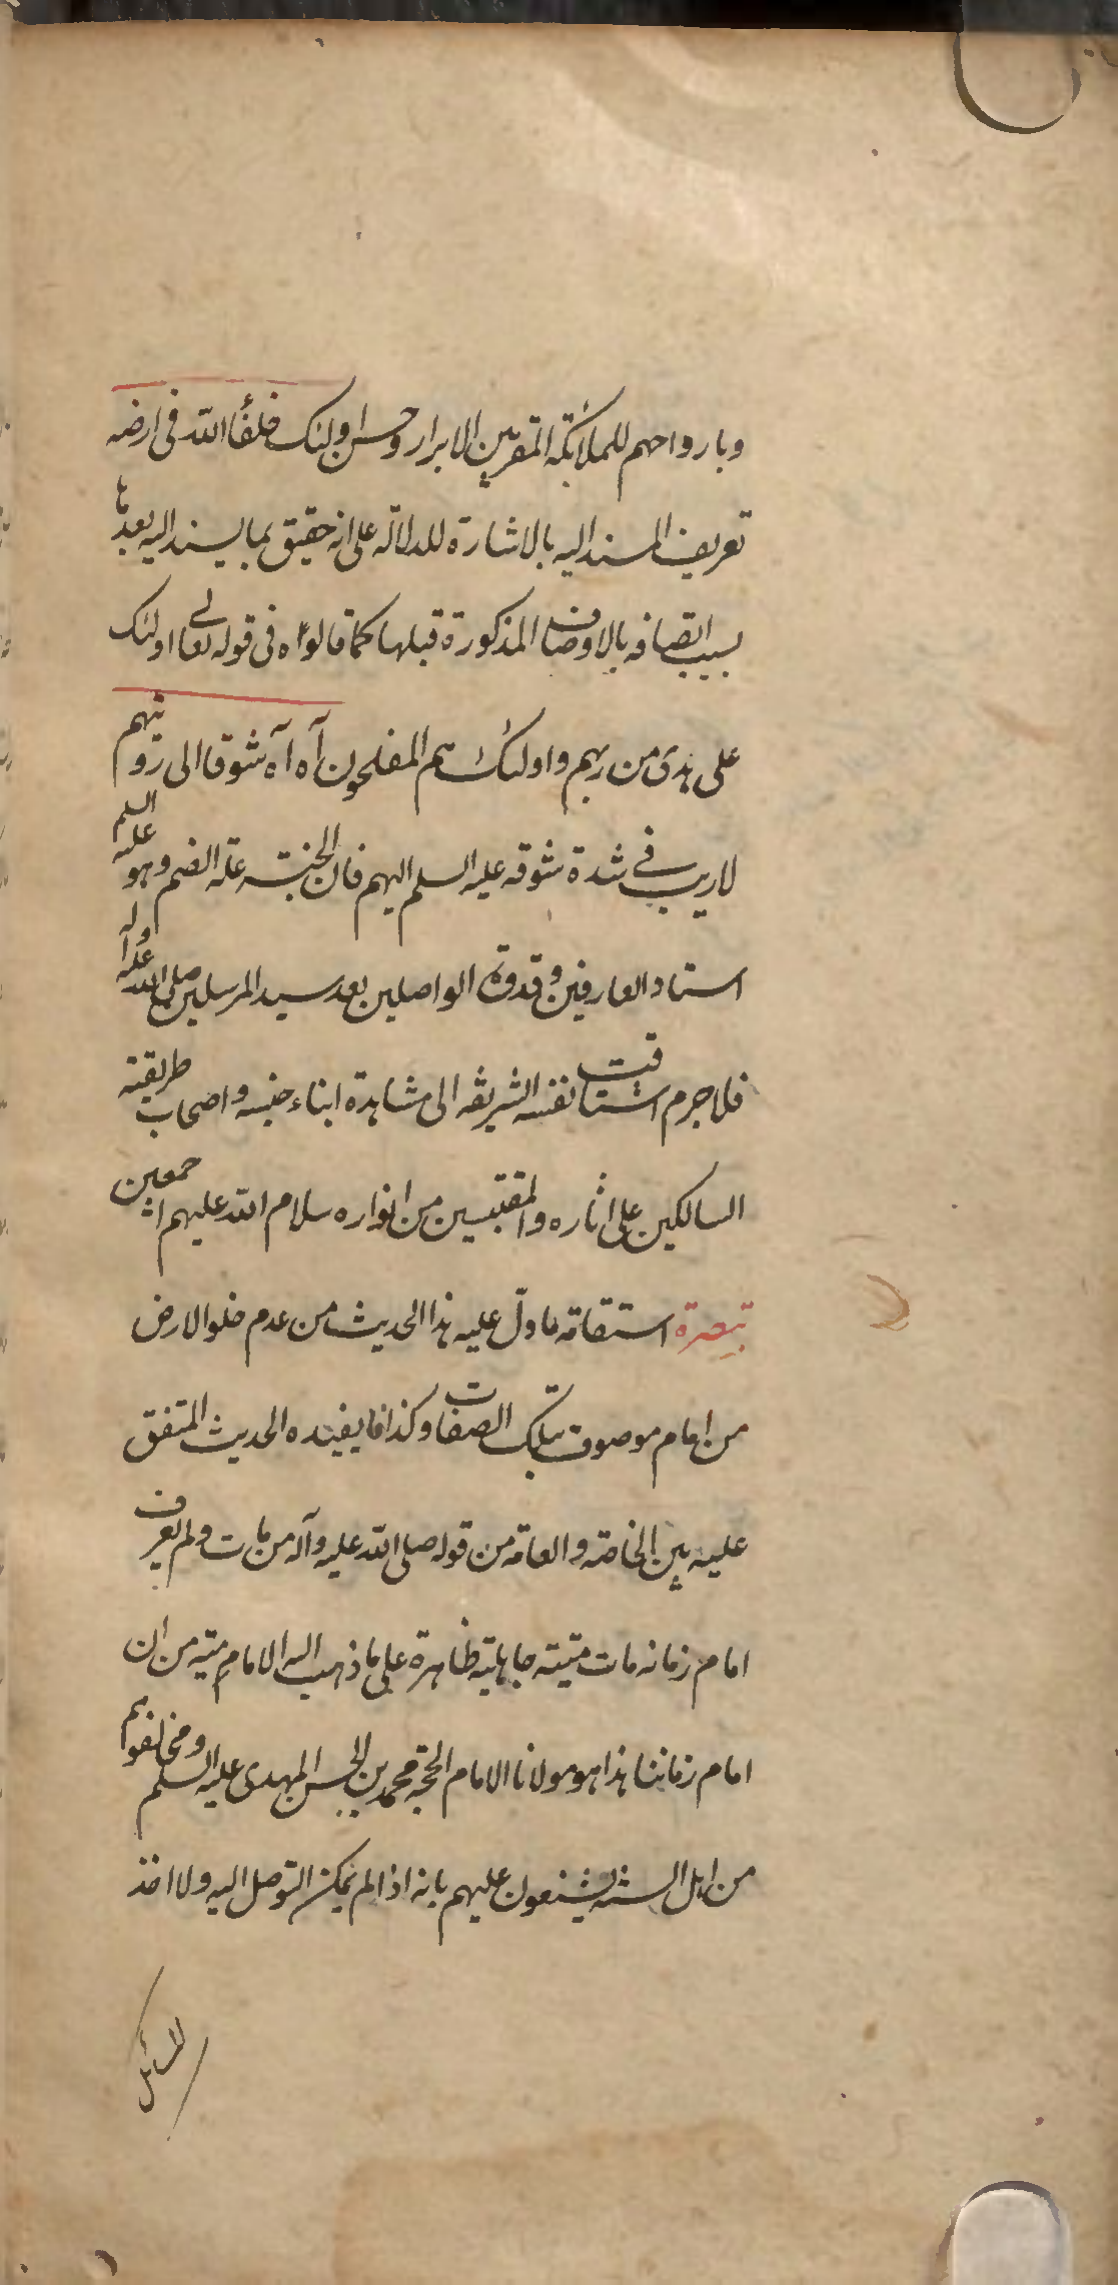 وبارواحهم للملائكة المقربين الابرار وحسن اولئك خلفاً الله فى ارضه
تعريف المسند اليه بالاشارة للدلالة على انه حقيق بما يسند اليه بعدها
بسبب اتصافه بالاوصاف المذكورة قبلها كما قالوه فى قوله تعالى اولئك
على هدى من ربهم واولئك هم المفلحون آه آه شوقا الى رؤيتهم
لاريب فى شدة شوقه عليه السلم اليهم فان الجنسية علة الضم وهو عليه السلم
استاد العارفين وقدوة الواصلين بعد سيد المرسلين صلى الله عليه وآله
فلا جرم اشتاقت نفسه الشريفه الى مشاهدة ابناء جنسه واصحاب طريقته
السالكين على اثاره والمقتبسين من انواره سلام الله عليهم اجمعين
تبصرة استقامة ما دلّ عليه هذا الحديث من عدم خلو الارض
من امام موصوف بتلك الصفات وكذا ما يفيده الحديث المتفق
عليه بين الخاصة والعامة من قوله صلى الله عليه وآله من مات ولم يعرف
امام زمانه مات ميتة جاهلية ظاهرة على ما ذهب اليه الامامية من ان
امام زماننا هذا هو مولانا الامام الحجة محمد بن الحسن المهدى عليه السلم ومخالفوهم
من اهل السنة يشنعون عليهم بانه اذا لم يمكن التوصل اليه ولا اخذ
المسائل